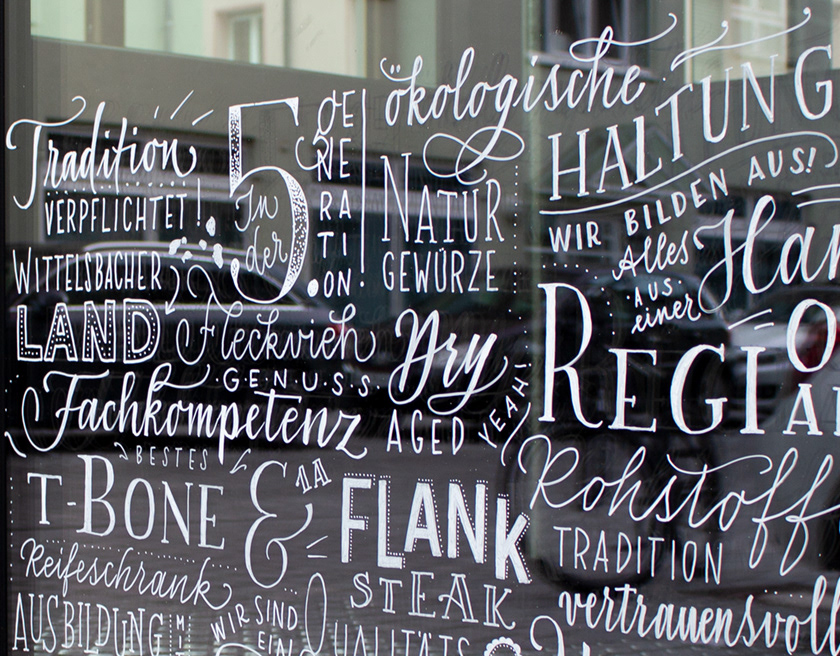 Tradition
VERPFLICHTET!
In der 5. GENERATION
ökologische
HALTUNG
NATUR
GEWÜRZE
WIR BILDEN AUS!
Alles
AUS
einer
WITTELSBACHER
LAND
Fleckvieh
GENUSS
Dry
AGED
YEAH!
Fachkompetenz
BESTES
T-BONE
&
1A
FLANK
STEAK
Rohstoff
TRADITION
vertrauensvoll
Reifeschrank
AUSBILDUNG
WIR SIND
EIN